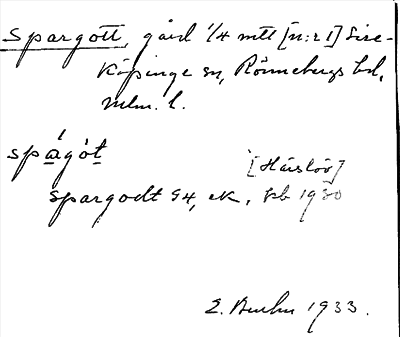 Spargott, gård 1/4 mtl [n:r 1] Sire-
köpinge sn, Rönnebergs hd,
Mlm. l.
spàgót
[Härslöv]
spargodt 94, ek, jb 1930
E. Buhu 1933.